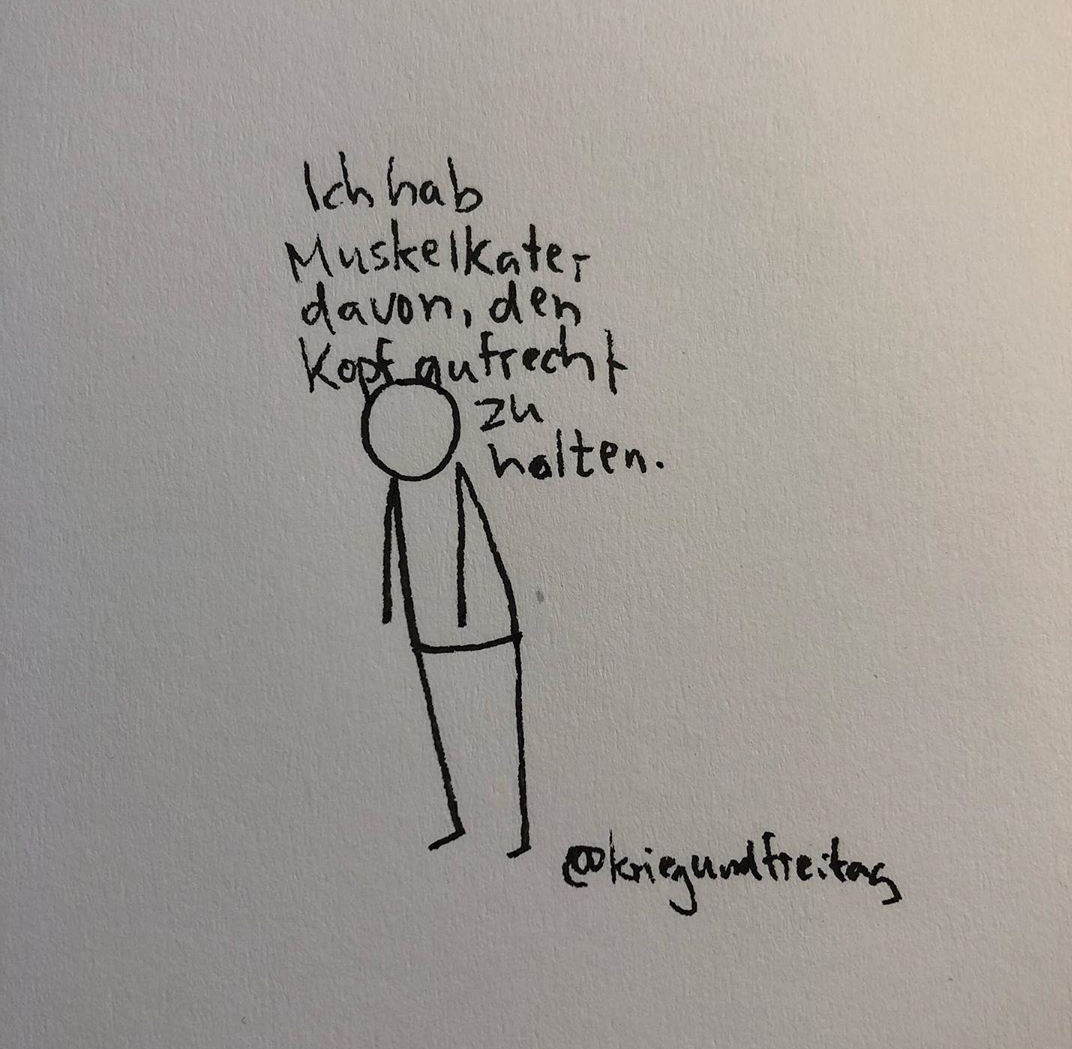 Ich hab
Muskelkater
davon, den
Kopf aufrecht
zu
halten.
@kriegundfreitag